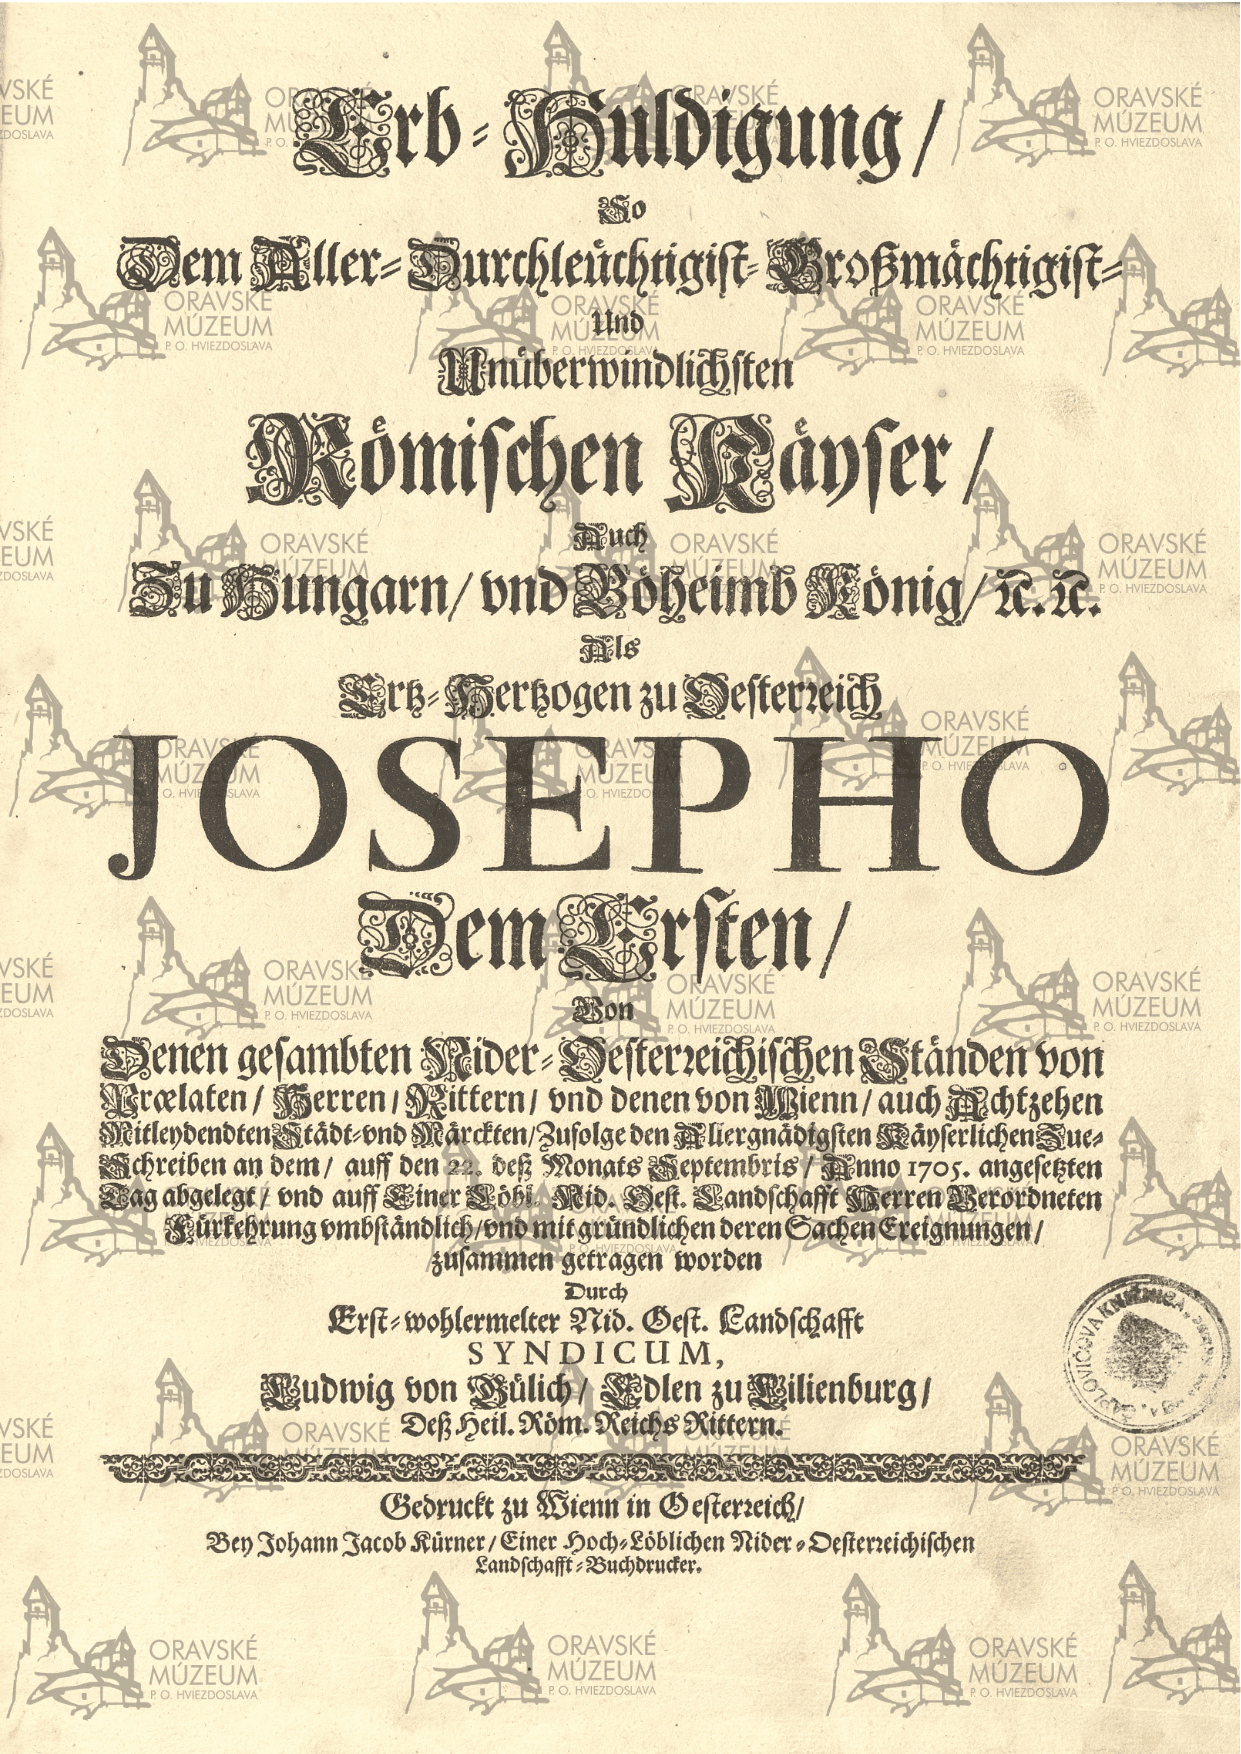 Erb-Huldigung/
So
Dem Aller-Durchleüchtigist-Großmächtigist-
Und
Unüberwindlichsten
Römischen Käyser/
Auch
Zu Hungarn/ vnd Böheimb König/ ꝛc. ꝛc.
Als
Ertz-Hertzogen zu Oesterreich
JOSEPHO
Dem Ersten/
Von
Denen gesambten Nider-Oesterreichischen Ständen von
Prælaten/ Herren/ Rittern/ vnd denen von Wienn/ auch Achtzehen
Mitleydendten Städt-vnd Märckten/ Zufolge den Allergnädigsten Käyserlichen Zue-
Schreiben an dem/ auff den 22. deß Monats Septembris/ Anno 1705. angesetzten
Tag abgelegt/ vnd auff Einer Löbl. Nid. Oest. Landschafft Herren Verordneten
Fürkehrung vmbständlich/ vnd mit gründlichen deren Sachen Ereignungen/
zusammen getragen worden
Durch
Erst-wohlermelter Nid. Oest. Landschafft
SYNDICUM,
Ludwig von Gülich/ Edlen zu Lilienburg/
Deß Heil. Röm. Reichs Rittern.
Gedruckt zu Wienn in Oesterreich/
Bey Johann Jacob Kürner/ Einer Hoch-Löblichen Nider-Oesterreichischen
Landschafft-Buchdrucker.
ČAPLOVIČOVA KNIŽNICA
ORAVSKÉ
MÚZEUM
P. O. HVIEZDOSLAVA